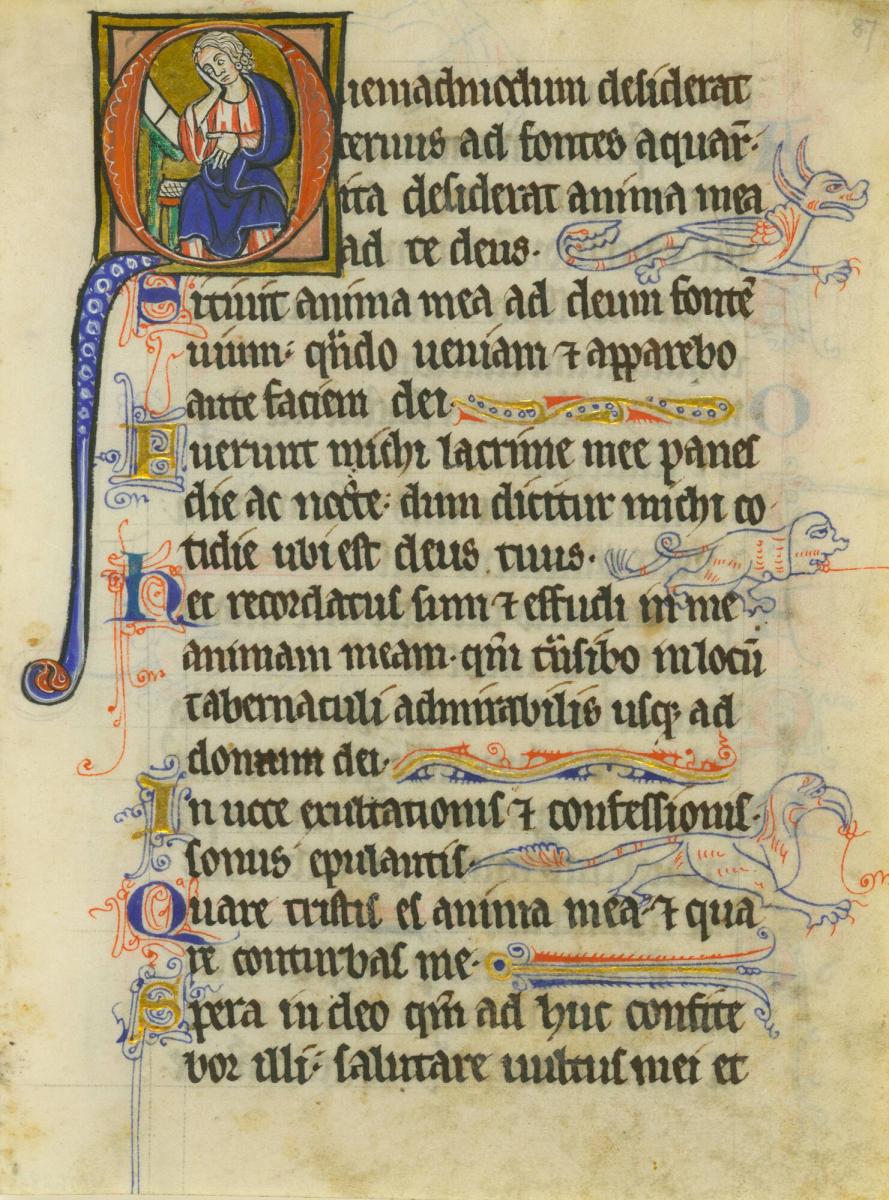 87
Quemadmodum desiderat
ceruus ad fontes aquaꝝ·
ita desiderat anima mea
ad te deus·
Sitiuit anima mea ad deum fontē
uiuum: qn̄do ueniam ⁊ apparebo
ante faciem dei·
Fuerunt michi lacrime mee panes
die ac nocte: dum dicitur michi co
tidie ubi est deus tuus·
Hec recordatus sum ⁊ effudi in me
animam meam· qm̄ tn̄sibo in locū
tabernaculi admirabilis usqꝫ ad
domum dei·
In uoce exultationis ⁊ confessionis·
sonus epulantis·
Quare tristis es anima mea· ⁊ qua
re conturbas me·
Spera in deo qm̄ ad huc confite
bor illi: salutare uultus mei et